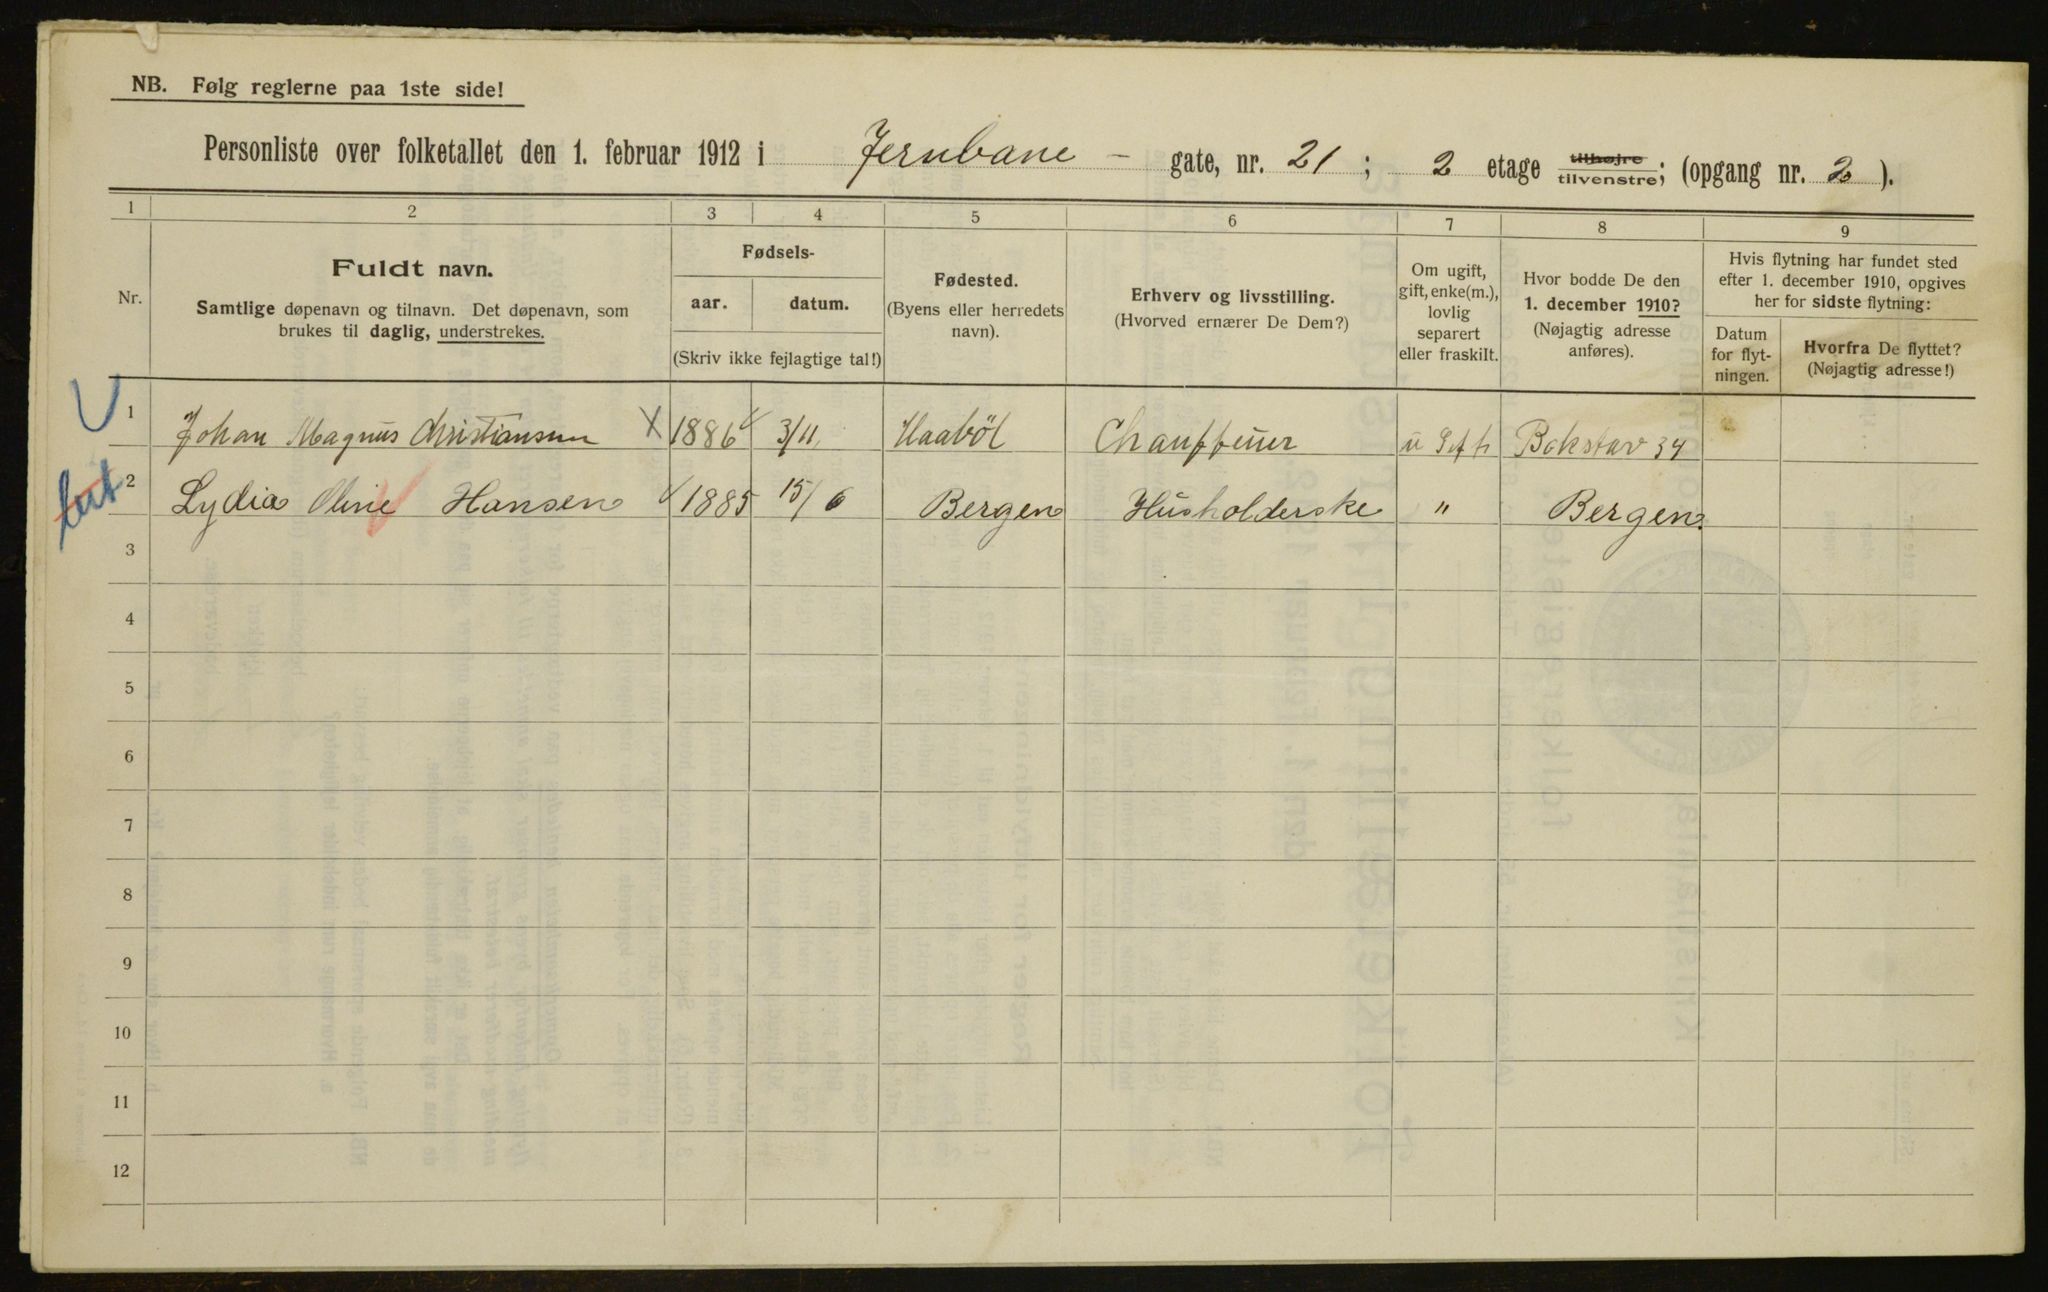 NB. Følg reglerne paa 1ste side!
Personliste over folketallet den 1. februar 1912 i Jernbane - gate, nr. 21 ; 2 etage tilhøjre tilvenstre; (opgang nr. 2 ).
1 2 3 4 5 6 7 8 9
Nr.
Fuldt navn.
Samtlige døpenavn og tilnavn. Det døpenavn, som
brukes til daglig, understrekes.
Fødsels-
aar. datum.
(Skriv ikke fejlagtige tal!)
Fødested.
(Byens eller herredets
navn).
Erhverv og livsstilling.
(Hvorved ernærer De Dem?)
Om ugift,
gift, enke(m.),
lovlig
separert
eller fraskilt.
Hvor bodde De den
1. december 1910?
(Nøjagtig adresse
anføres).
Hvis flytning har fundet sted
efter 1. december 1910, opgives
her for sidste flytning:
Datum
for flyt-
ningen.
Hvorfra De flyttet?
(Nøjagtig adresse!)
1 Johan Magnus Christiansen X 1886 3/11 Haaböl Chauffeuer u Gift Bokstav 34
2 Lydia Oline Hansen 1885 15/6 Bergen Husholderske " Bergen
3
4
5
6
7
8
9
10
11
12